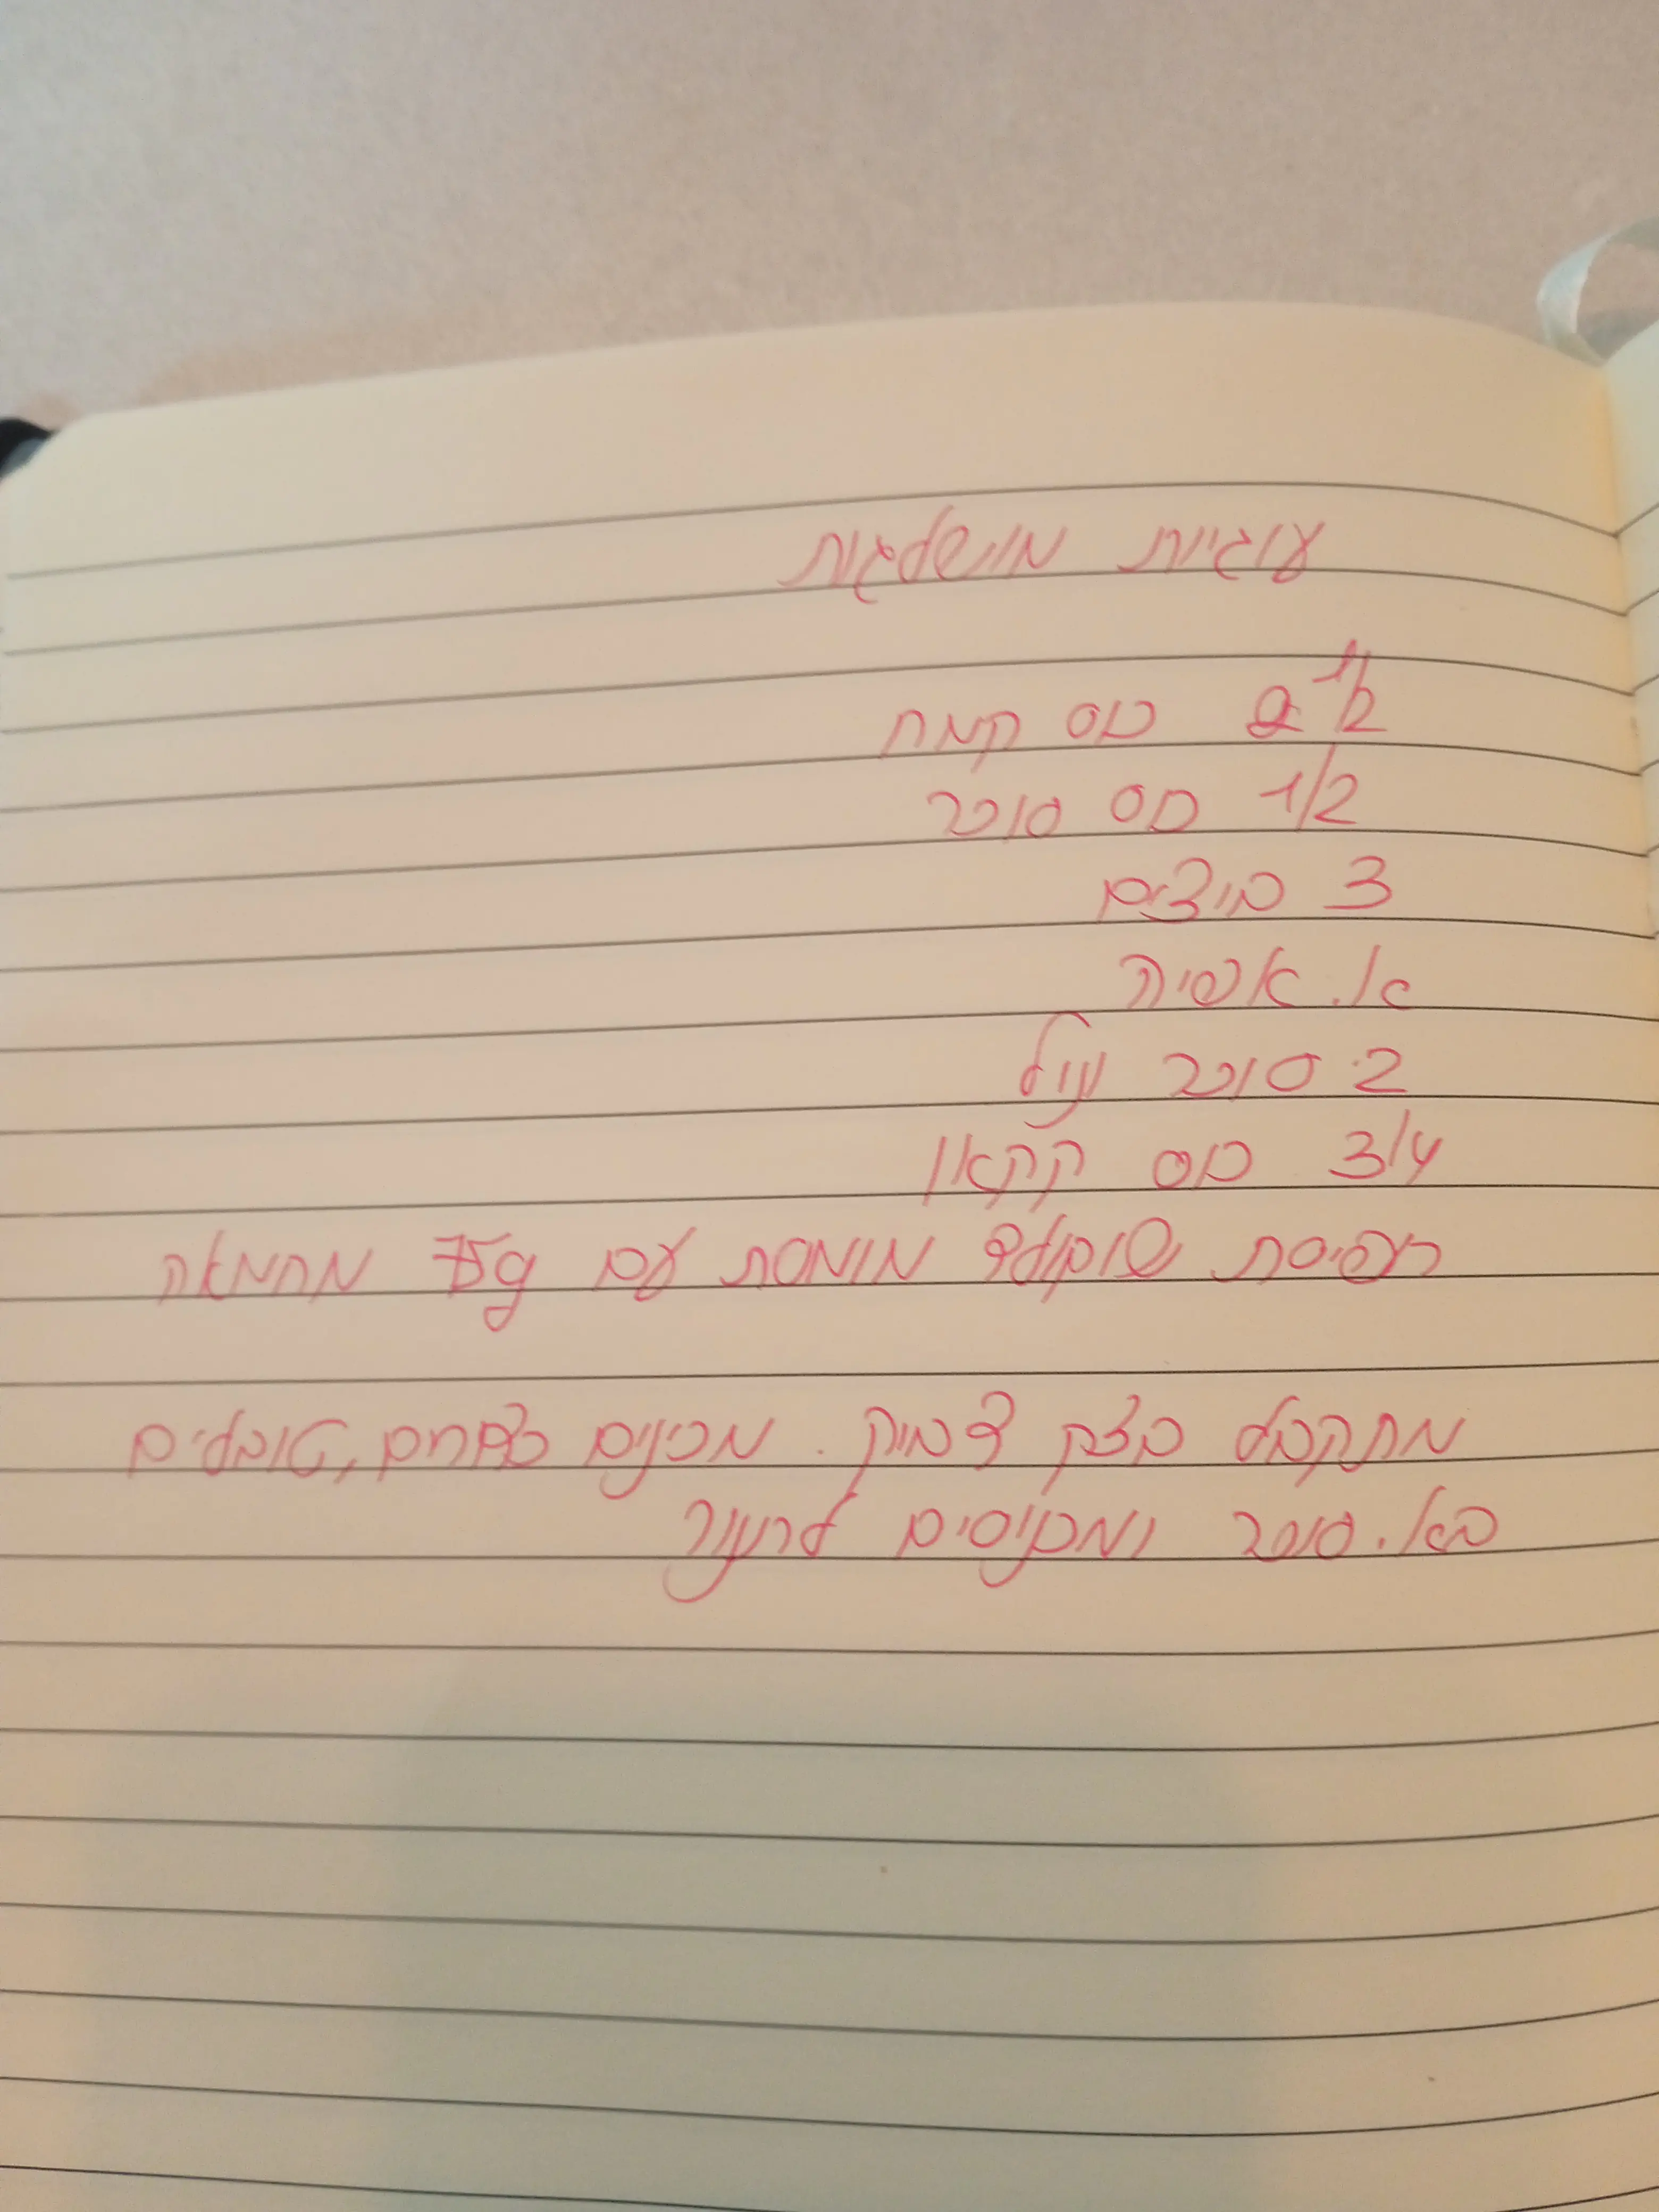 עוגיות מושלגות
2 1/2 כוס קמח
1/2 כוס סוכר
3 ביצים
א. אפיה
2 סוכר וניל
3/4 כוס קקאו
חפיסת שוקולד מומסת עם 75 גר' מחמאה
מתקבל בצק דביק. מכינים כדורים, טובלים
באב. סוכר ומכניסים לתנור